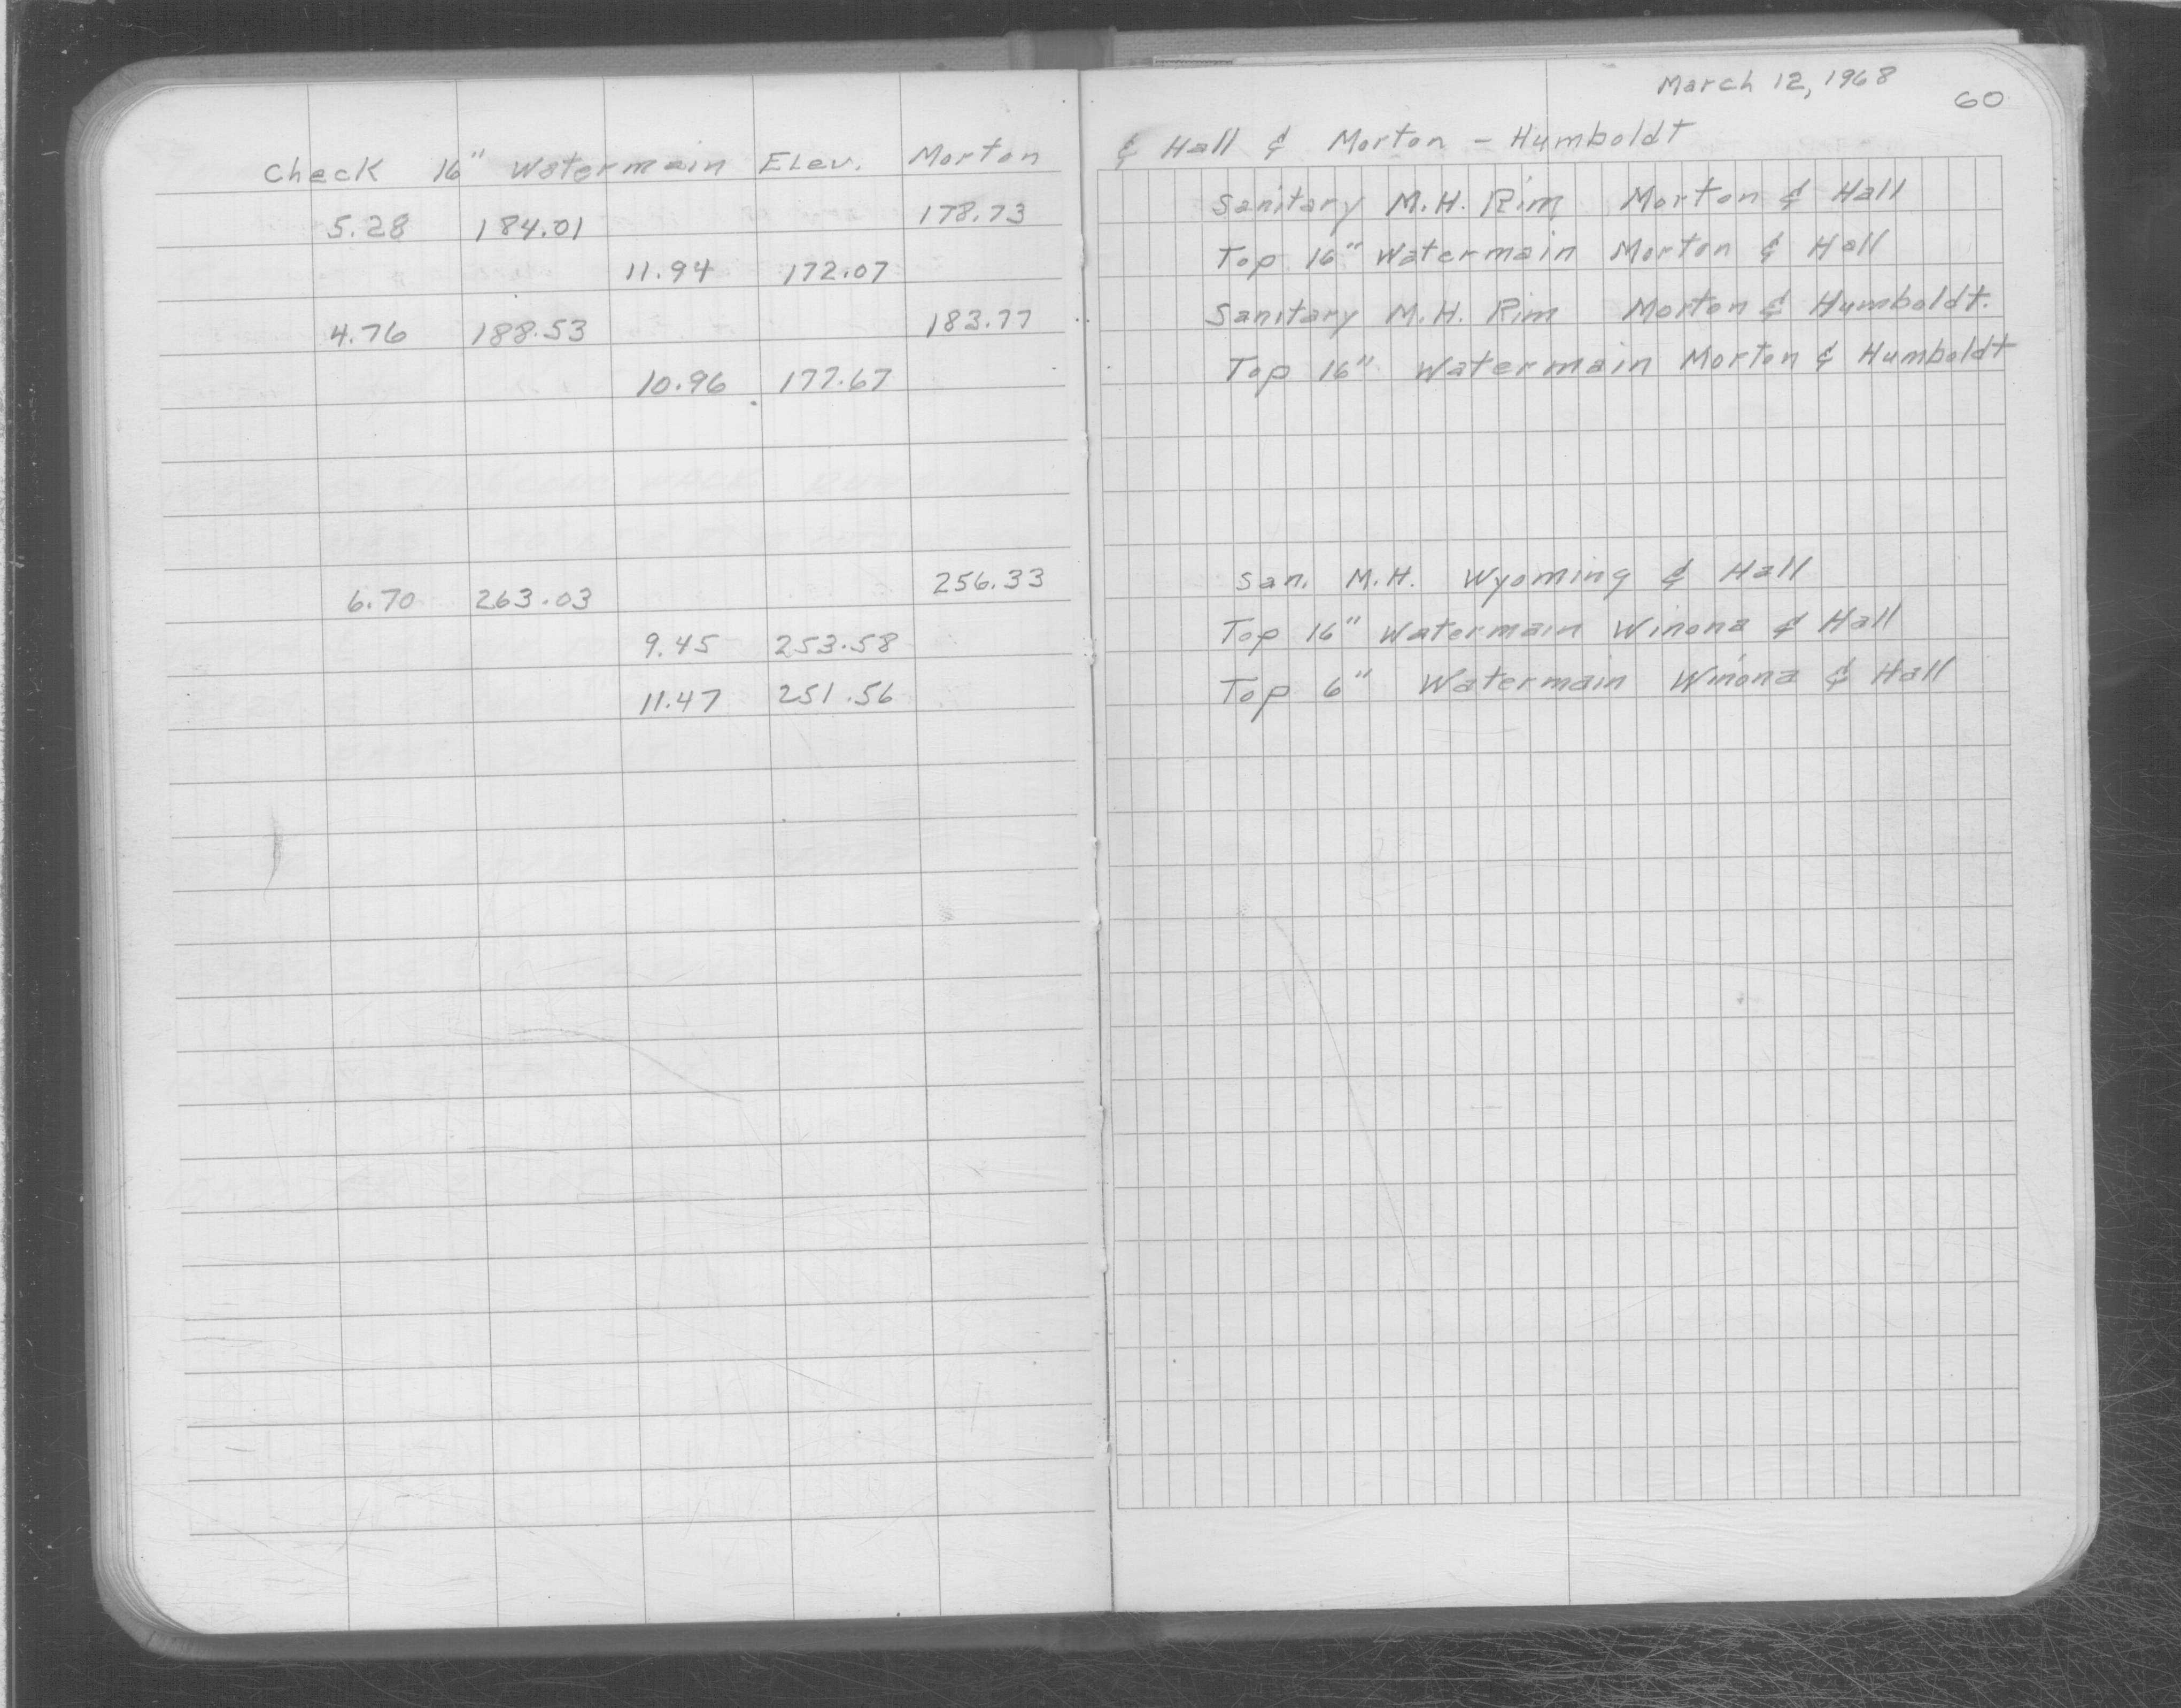 March 12, 1968
60
Check 16" Watermain Elev. Morton & Hall & Morton - Humboldt
5.28 184.01 178.73 Sanitary M.H. Rim Morton & Hall
11.94 172.07 Top 16" Watermain Morton & Hall
4.76 188.53 183.77 Sanitary M.H. Rim Morton & Humboldt.
10.96 177.67 Top 16" Watermain Morton & Humboldt
6.70 263.03 256.33 San. M.H. Wyoming & Hall
9.45 253.58 Top 16" Watermain Winona & Hall
11.47 251.56 Top 6" Watermain Winona & Hall